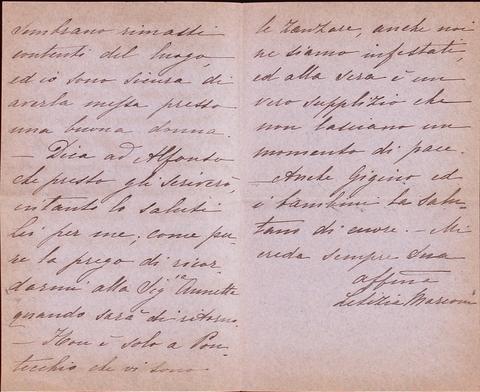 sembrano rimasti
contenti del luogo,
ed io sono sicura di
averla messa presso
una buona donna.
— Dica ad Alfonso
che presto gli scriverò,
intanto lo saluti
Lei per me, come pu-
re la prego di ricor-
darmi alla Sigᵃ Annetta
quando sarà di ritorno.
— Non è solo a Pon-
tecchio che vi sono
le zanzare, anche noi
ne siamo infestati,
ed alla sera è un
vero supplizio che
non lasciano un
momento di pace.
— Anche Gigino ed
i bambini la salu-
tano di cuore. — Mi
creda sempre Sua
affma
Letizia Marconi